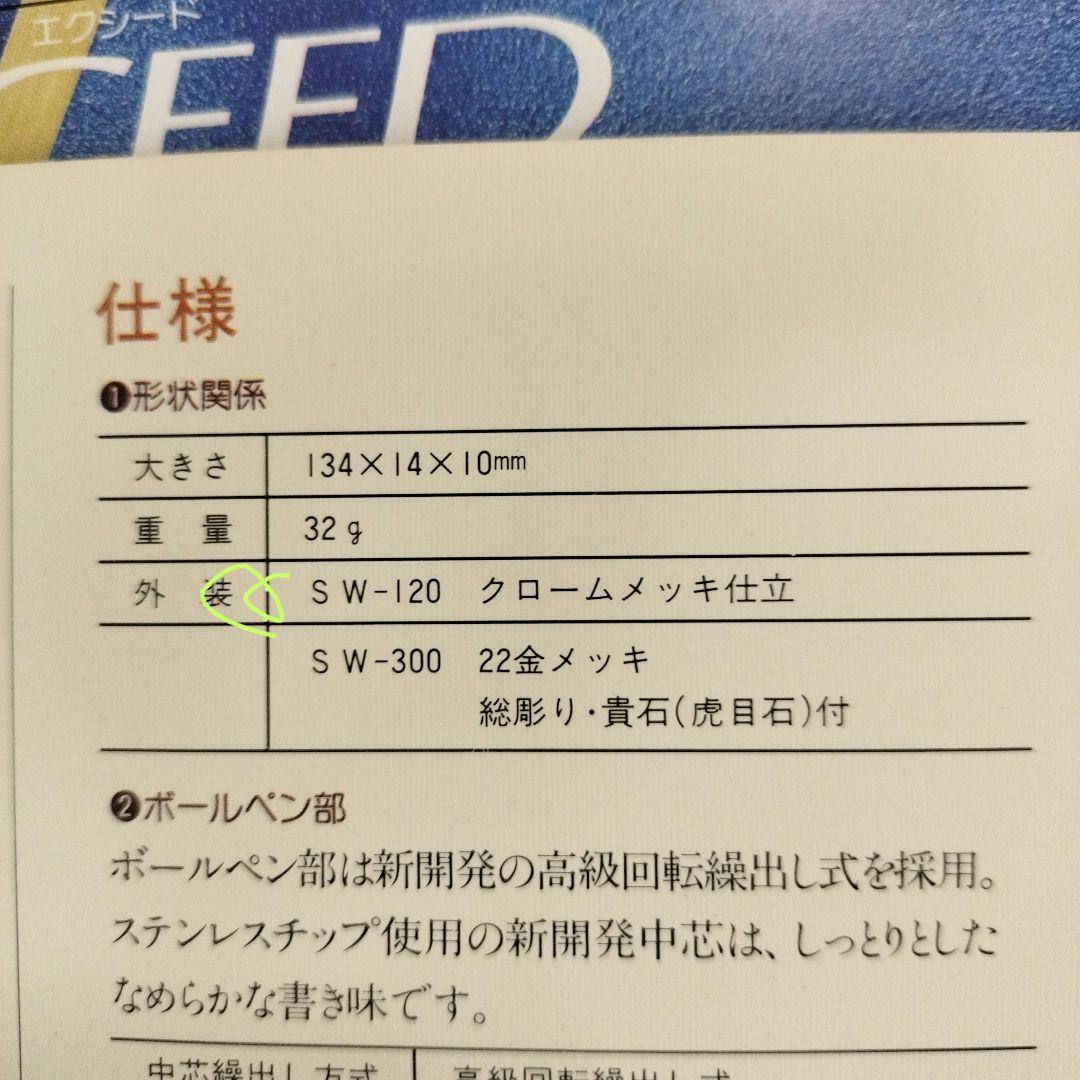 エクシード
CEED
仕様
❶形状関係
大きさ 134×14×10mm
重量 32g
外装 SW-120 クロームメッキ仕立
SW-300 22金メッキ
総彫り・貴石(虎目石)付
❷ボールペン部
ボールペン部は新開発の高級回転繰出し式を採用。
ステンレスチップ使用の新開発中芯は、しっとりとした
なめらかな書き味です。
中芯繰出し方式 高級回転繰出し式